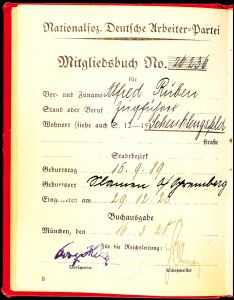 Nationalsoz. Deutsche Arbeiter-Partei
Mitgliedsbuch No. 20 236
für
Vor- und Zuname Alfred Rüben
Stand oder Beruf Zugführer
Wohnort (siehe auch S. 12—15)
straße
Stadtbezirk
Geburtstag 15. 9. 89
Geburtsort
Eingetreten am 29. 12. 25
Buchausgabe
München, den 16. 3. 28
Für die Reichsleitung:
Vorsitzender Schatzmeister
8